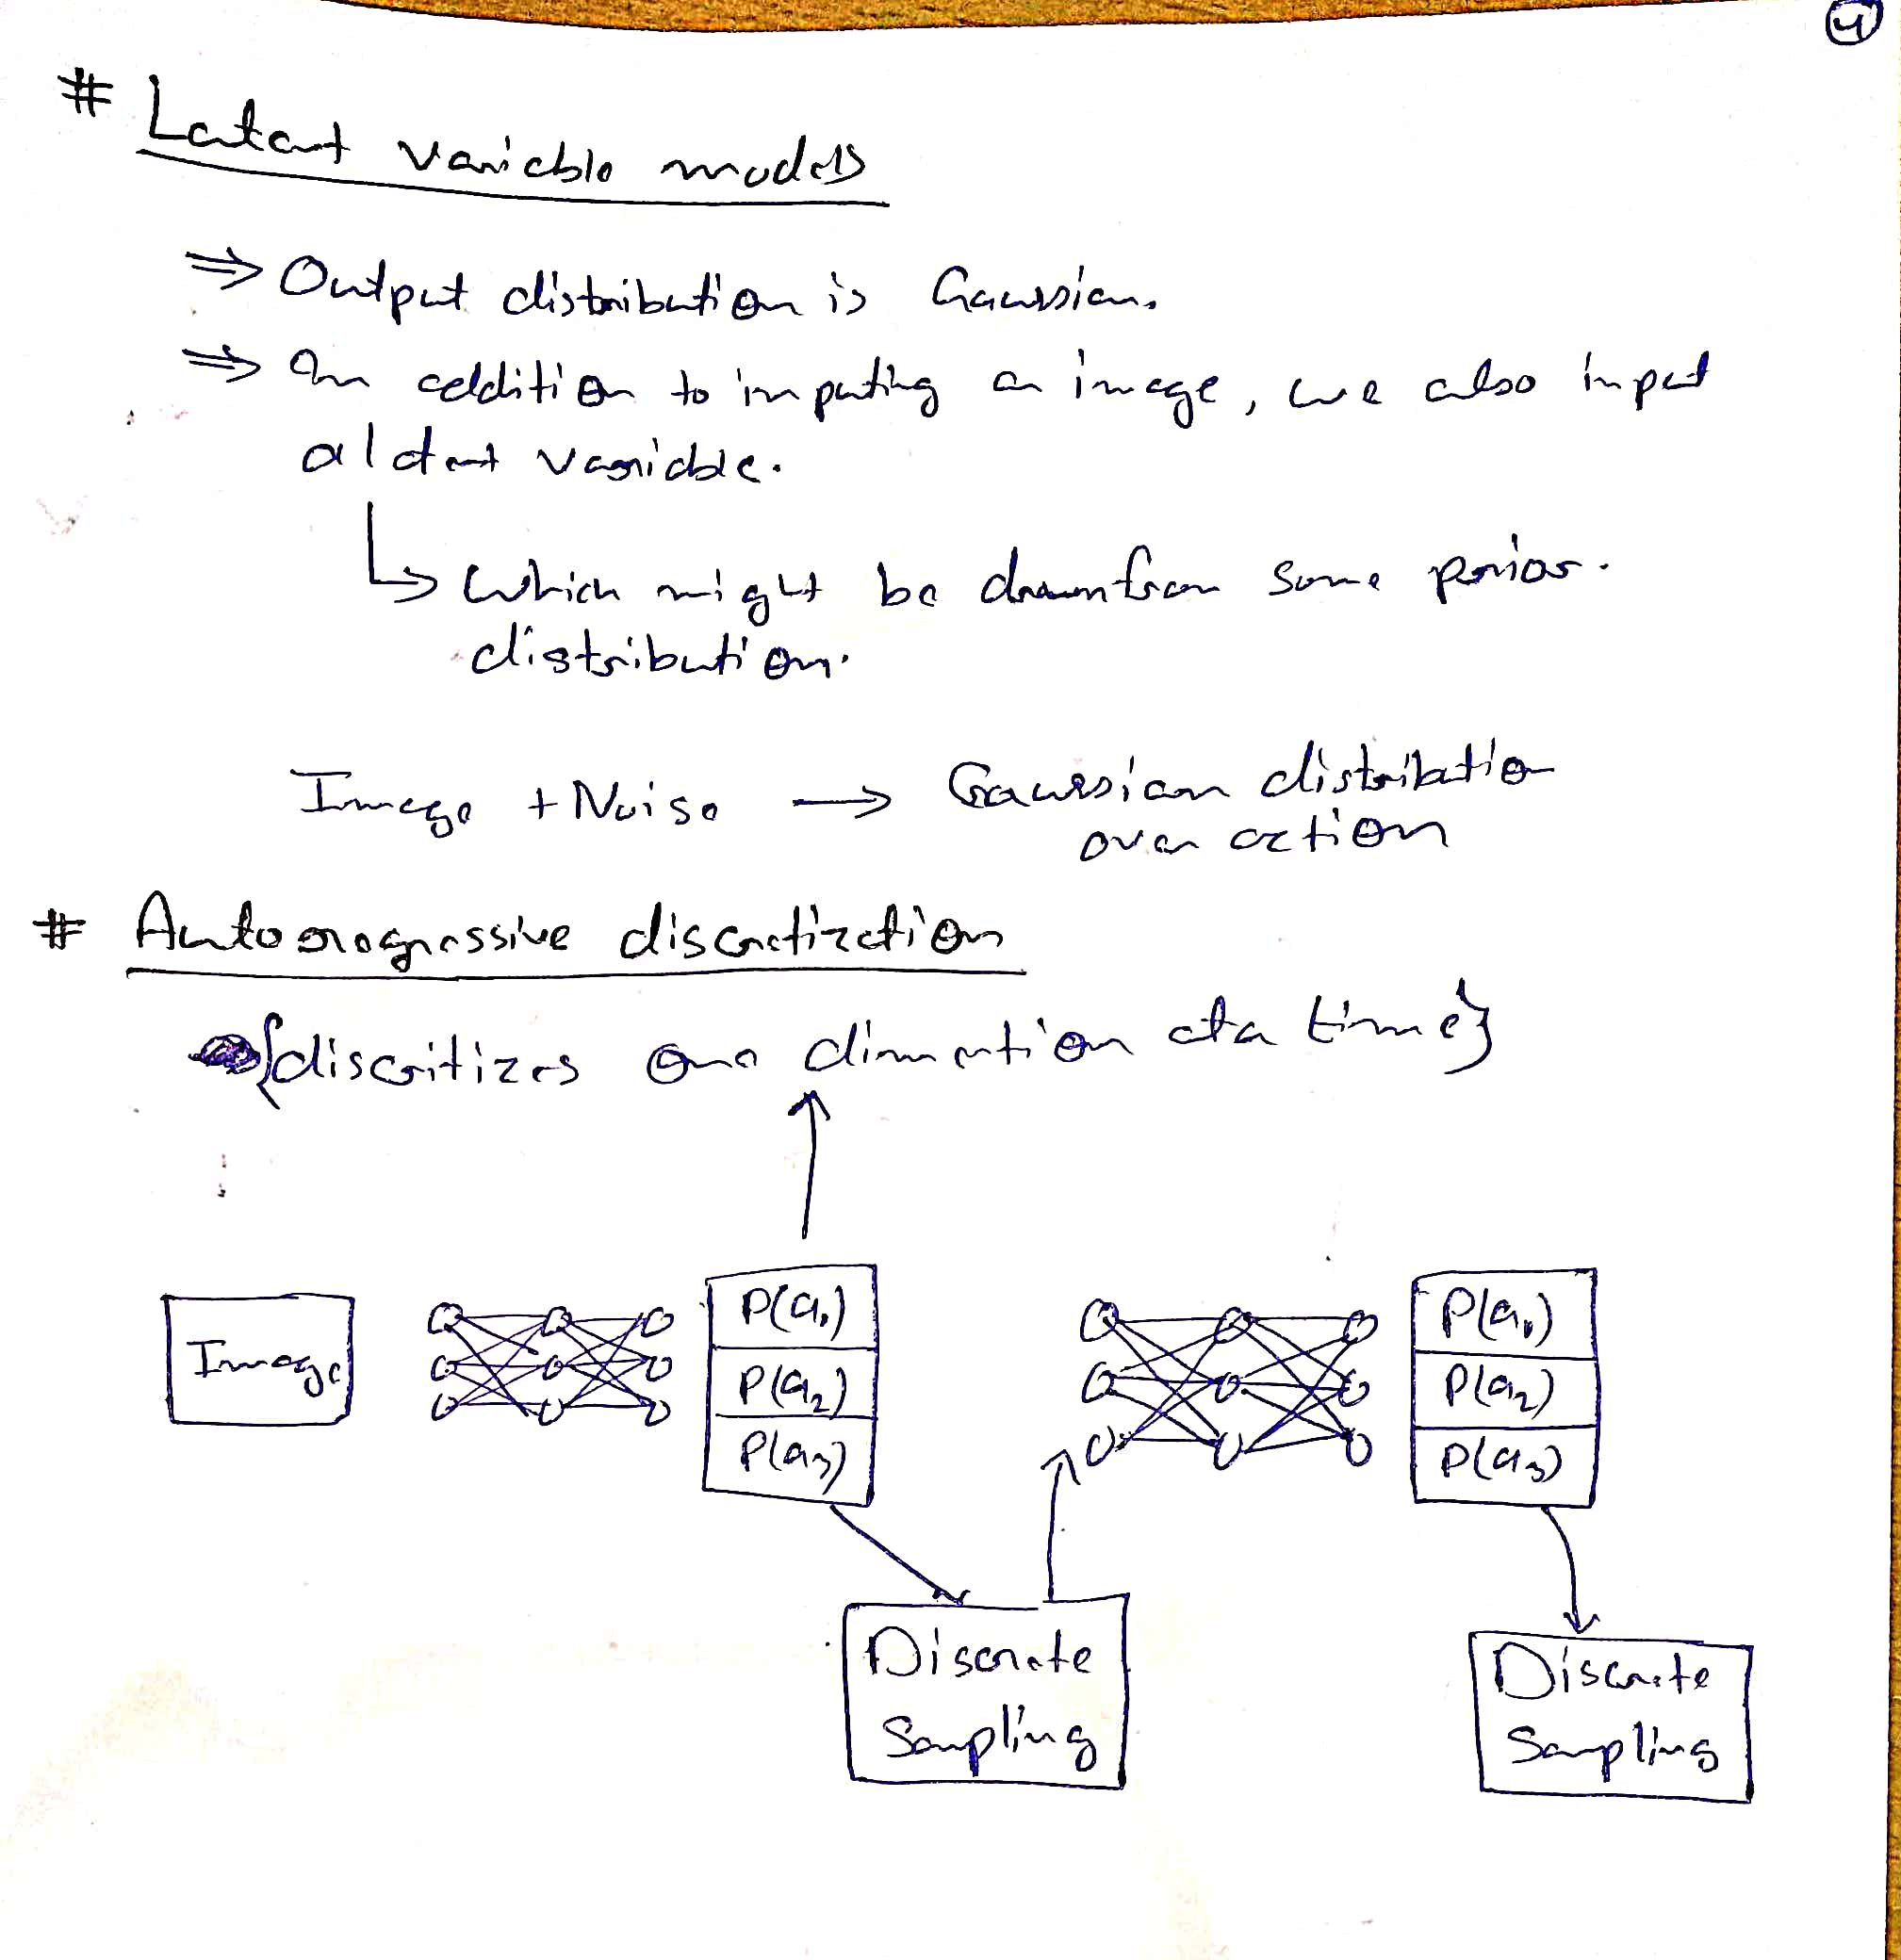 4
# Latent variable models
⇒ Output distribution is Gaussian.
⇒ In addition to inputing an image, we also input
a latent variable.
↳ Which might be drawn from some prior.
distribution.
Image + Noise → Gaussian distributio
over action
# Autoregressive discretization
{discritizes one dimention at a time}
Image
P(a₁)
P(a₂)
P(a₃)
P(a₁)
P(a₂)
P(a₃)
Discrete
Sampling
Discrete
Sampling